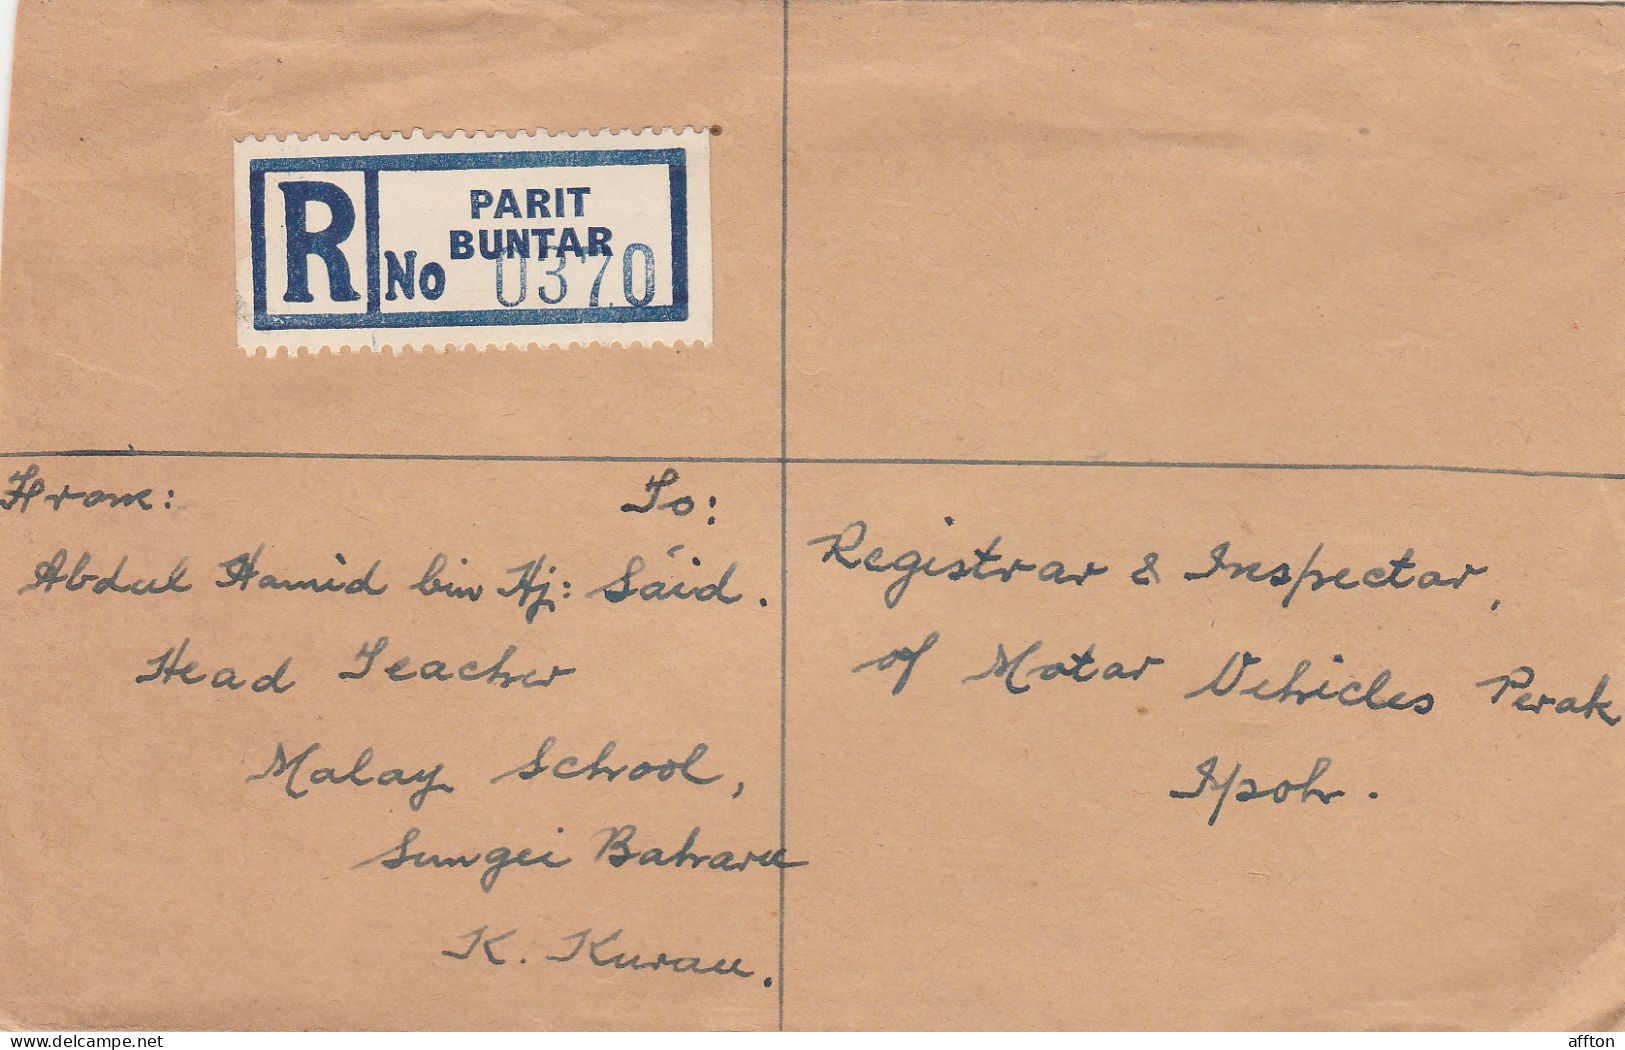 R
PARIT
BUNTAR
No 0370
From:
Abdul Hamid bin Hj: Sáid.
Head Teacher
Malay School,
Sungei Baharu
K. Kurau.
To:
Registrar & Inspector,
of Motor Vehicles Perak
Ipoh.
delcampe.net
affton